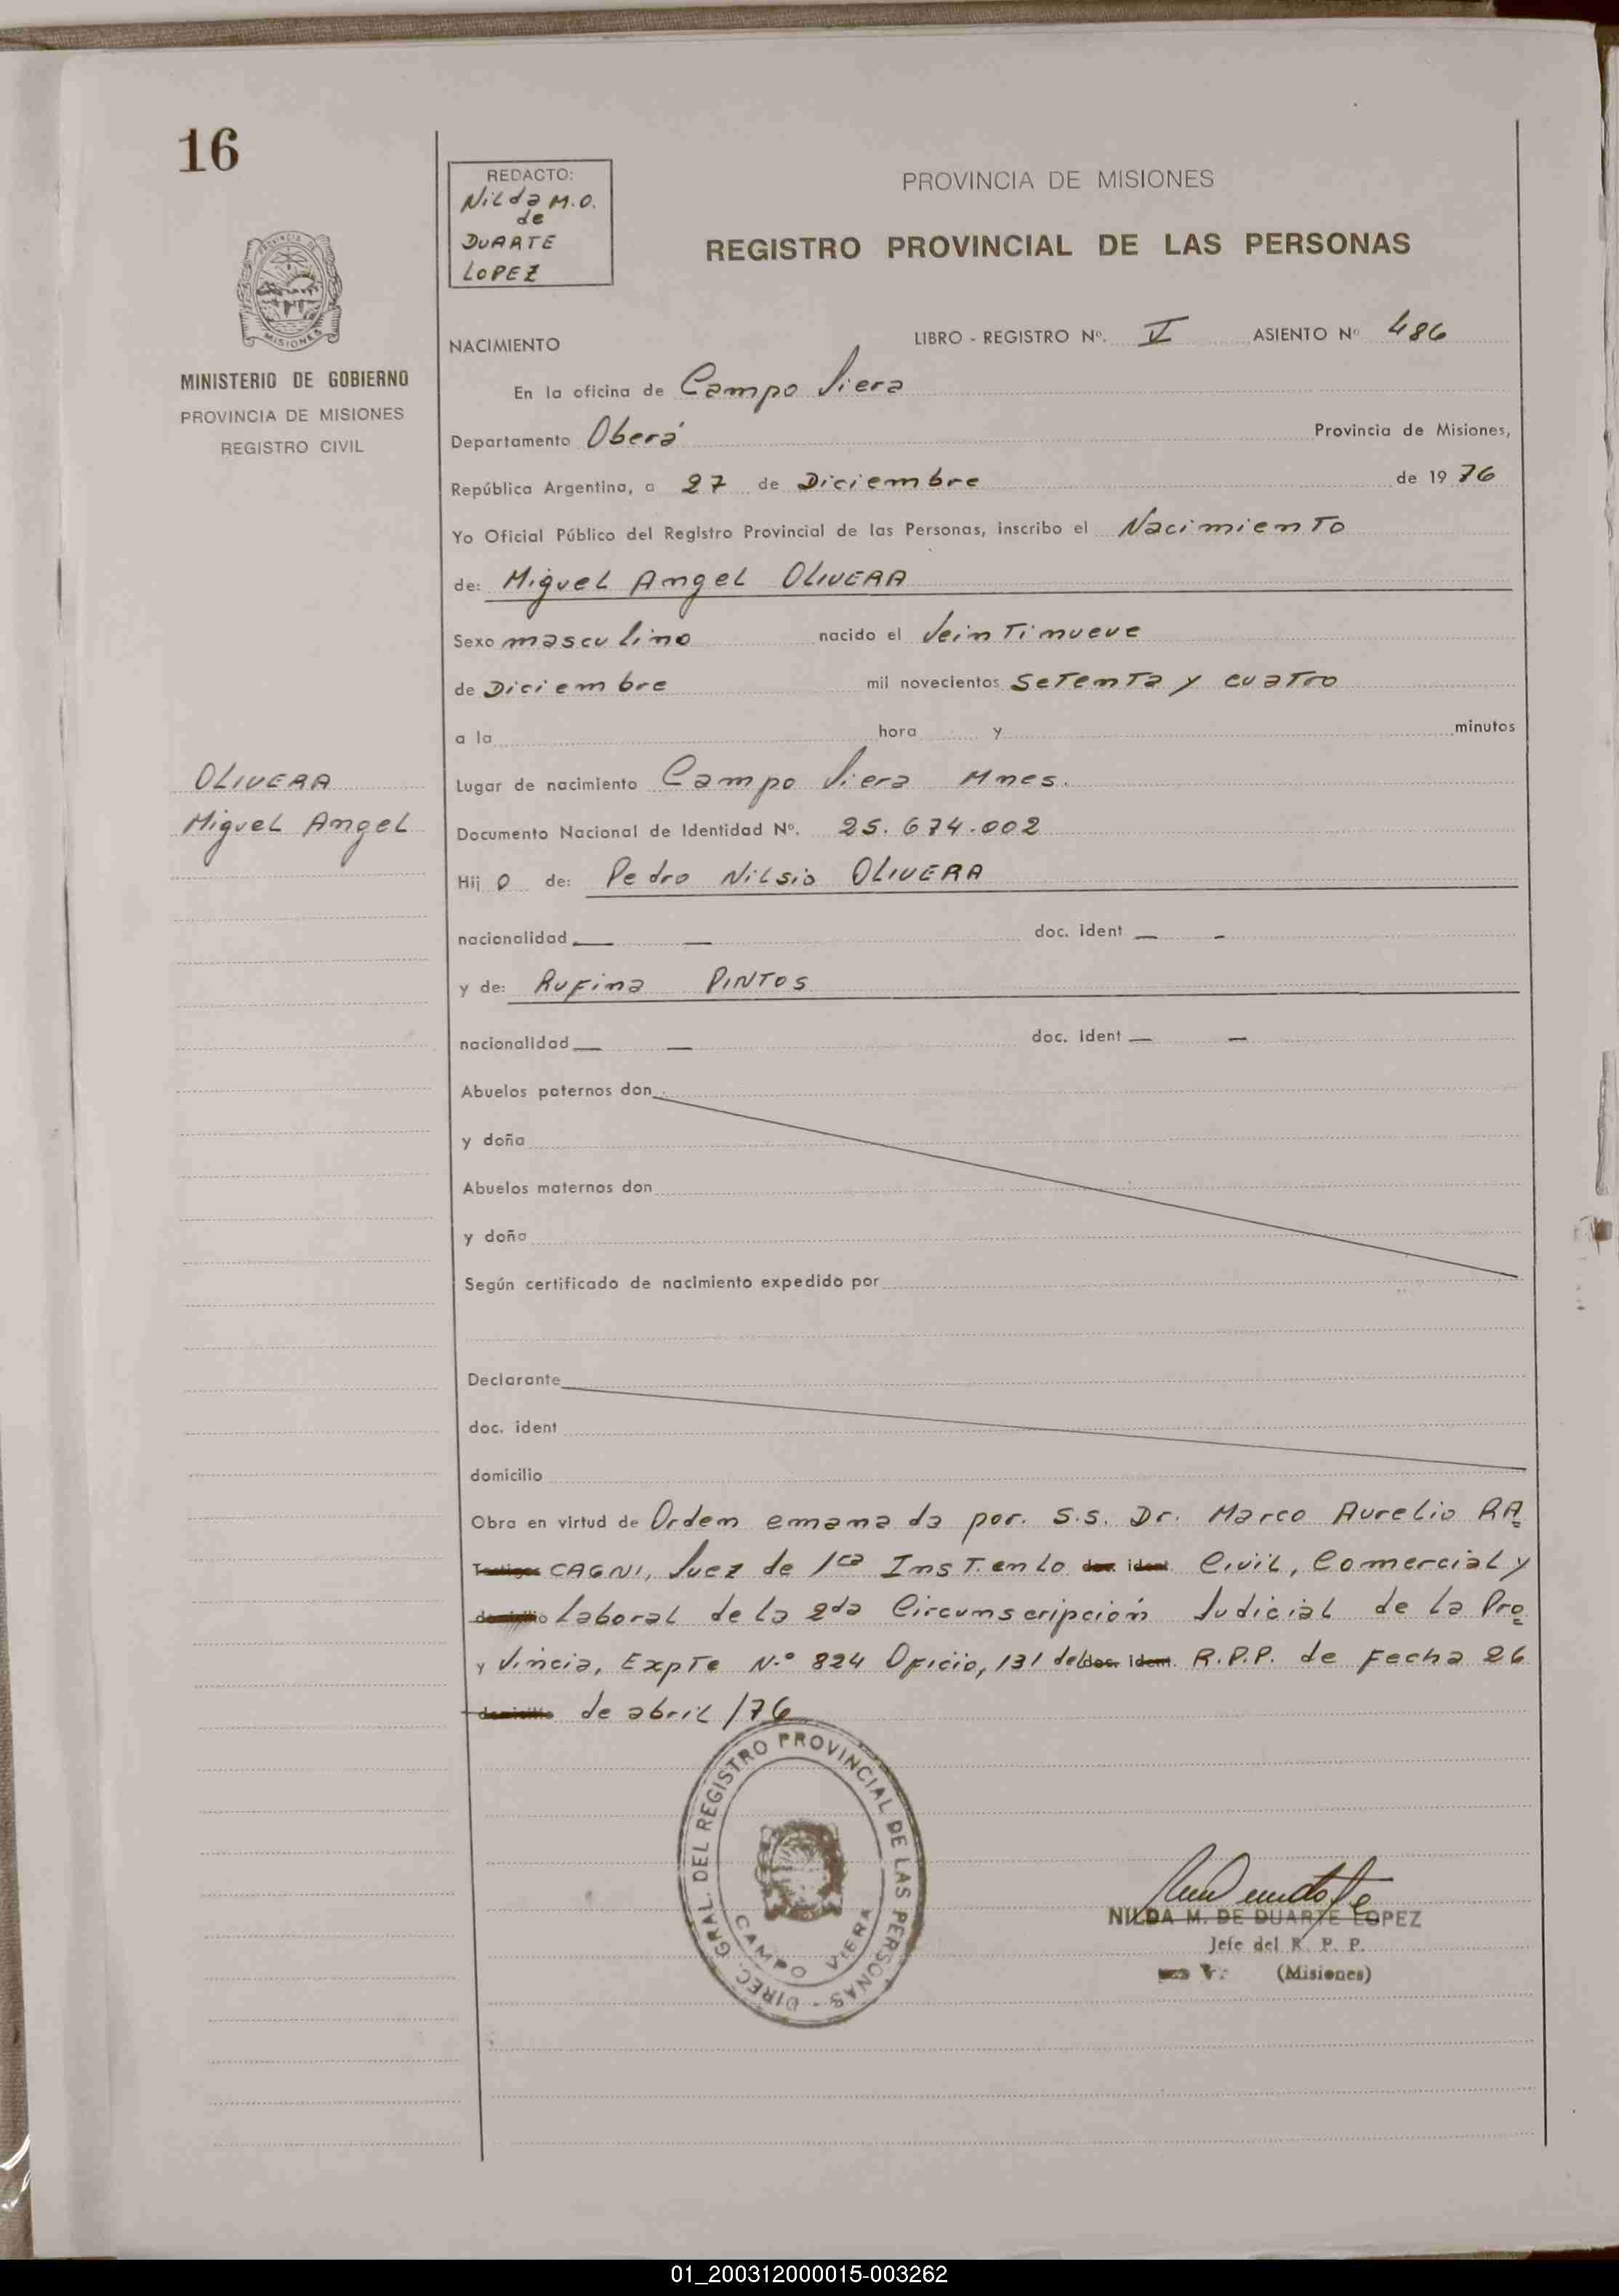 16
REDACTO:
Nilda M.O.
de
DUARTE
LOPEZ
PROVINCIA DE MISIONES
REGISTRO PROVINCIAL DE LAS PERSONAS
PROVINCIA DE
MISIONES
MINISTERIO DE GOBIERNO
PROVINCIA DE MISIONES
REGISTRO CIVIL
NACIMIENTO LIBRO - REGISTRO Nº. V ASIENTO Nº 486
En la oficina de Campo Viera
Departamento Oberá Provincia de Misiones,
República Argentina, a 27 de Diciembre de 19 76
Yo Oficial Público del Registro Provincial de las Personas, inscribo el Nacimiento
de: Miguel Angel OLIVERA
Sexo masculino nacido el Veintinueve
de Diciembre mil novecientos Setenta y cuatro
a la hora y minutos
OLIVERA
Miguel Angel
Lugar de nacimiento Campo Viera Mnes.
Documento Nacional de Identidad Nº. 25.674.002
Hij o de: Pedro Nilsio OLIVERA
nacionalidad — — doc. ident — -
y de: Rufina PINTOS
nacionalidad — — doc. ident — —
Abuelos paternos don
y doña
Abuelos maternos don
y doña
Según certificado de nacimiento expedido por
Declarante
doc. ident
domicilio
Obra en virtud de Orden emanada por. S.S. Dr. Marco Aurelio RA=
Testigos CAGNI, Juez de 1ca Inst. en lo doc. ident. Civil, Comercial y
domicilio laboral de la 2da Circunscripción Judicial de la Pro=
y Vincia, Expte N.º 824 Oficio, 131 del doc. ident. R.P.P. de Fecha 26
domicilio de abril /76
DIREC. GRAL. DEL REGISTRO PROVINCIAL DE LAS PERSONAS -
CAMPO VIERA
NILDA M. DE DUARTE LOPEZ
Jefe del R. P. P.
V. (Misiones)
01_200312000015-003262